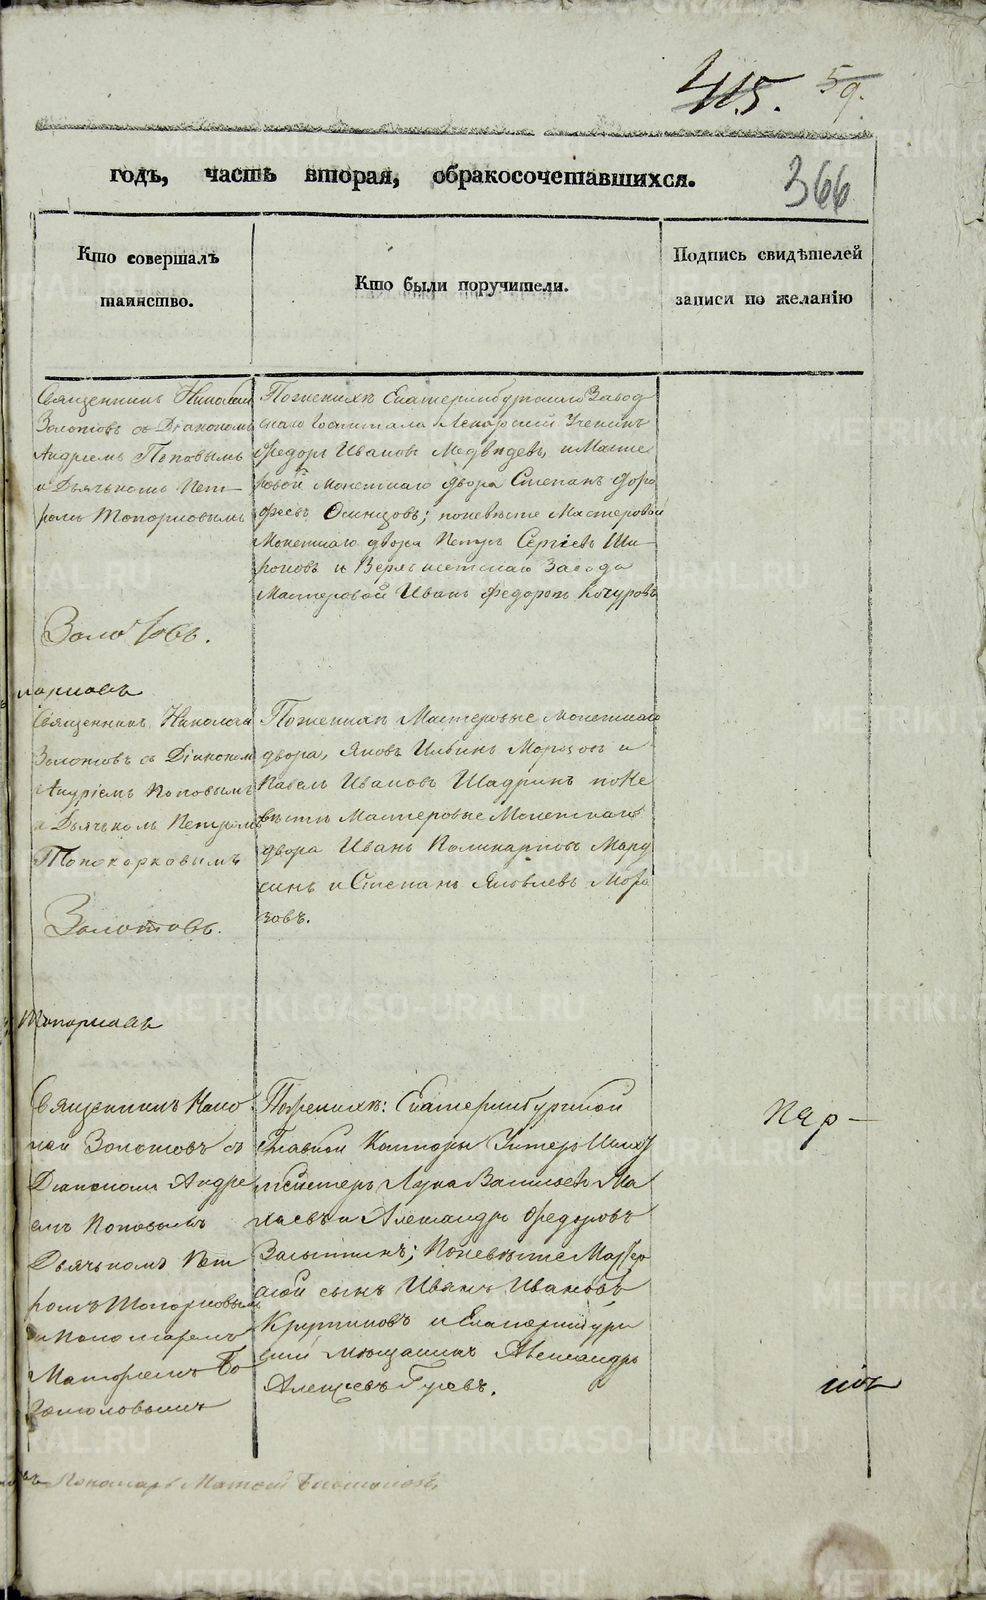 415. 59.
366
годъ, часть вторая, обракосочетавшихся.
Кто совершалъ
таинство.
Кто были поручители.
Подпись свидѣтелей
записи по желанію
Священникъ Николай
Золотовъ съ Діакономъ
Андріемъ Поповымъ
и Дьячькомъ Пет-
ромъ Топорковымъ
Золотовъ.
Поженихѣ Екатеринбургскаго Завод
скаго Госпиталя Лекарской Ученикъ
Федоръ Ивановъ Медвѣдевъ, и Масте
ровой монетнаго двора Степанъ Доро
феевъ Осинцовъ; поневѣсте Мастеровой
Монетнаго двора Петръ Сергѣевъ Ши-
роковъ и Верхъ исетскаго Завода
Мастеровой Иванъ Федоровъ Кочуровъ
Священникъ Николай
Золотовъ съ Діакономъ
Андріемъ Поповымъ
и Дьячькомъ Петромъ
Золотовъ.
Поженихѣ Мастеровые монетнаго
двора, Яковъ Ильинъ Морозовъ и
Павелъ Ивановъ Шадринъ поне
вѣстѣ Мастеровые Монетнаго
двора Иванъ Поликарповъ
и Степанъ Яковлевъ Моро
зовъ.
Топорковъ
Священникъ Нико
лай Золотовъ съ
Діакономъ Андре
емъ Поповымъ
Дьячькомъ Пет
ромъ Топорковымъ
и Пономаремъ
Матфеемъ Бо
гомоловымъ
Поженихѣ: Екатеринбургской
Главной Конторы Унтеръ Шихт
мейстеръ Лука Васильевъ Ма
и Александръ Федоровъ
поневѣсте Мастер
ской сынъ Иванъ Ивановъ
Крутиковъ и Екатеринбург
ский мѣщанинъ Александръ
Алексѣевъ Гуевъ.
Пономарь Матѳей Богомоловъ
METRIKI.GASO-URAL.RU